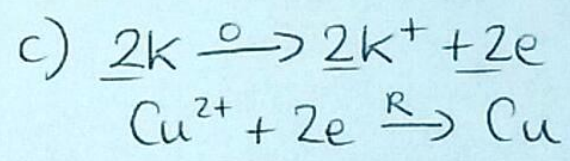 c) 2K O→ 2K⁺ + 2e
Cu²⁺ + 2e R→ Cu